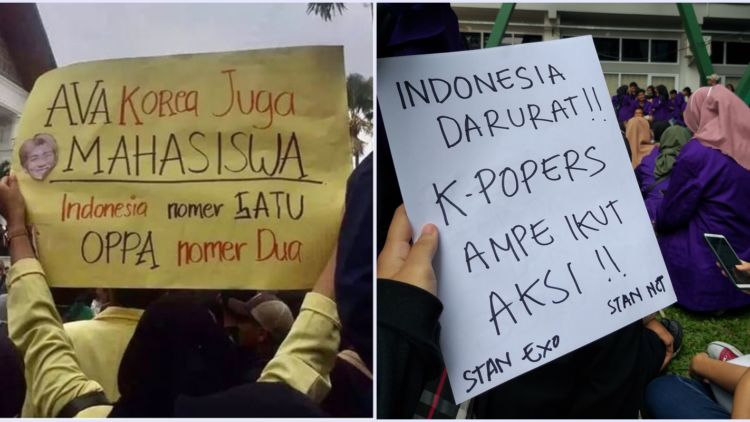 AVA Korea Juga
MAHASISWA
Indonesia nomer SATU
OPPA nomer Dua
INDONESIA
DARURAT!!
K-POPERS
AMPE IKUT
AKSI!!
STAN EXO
STAN NCT